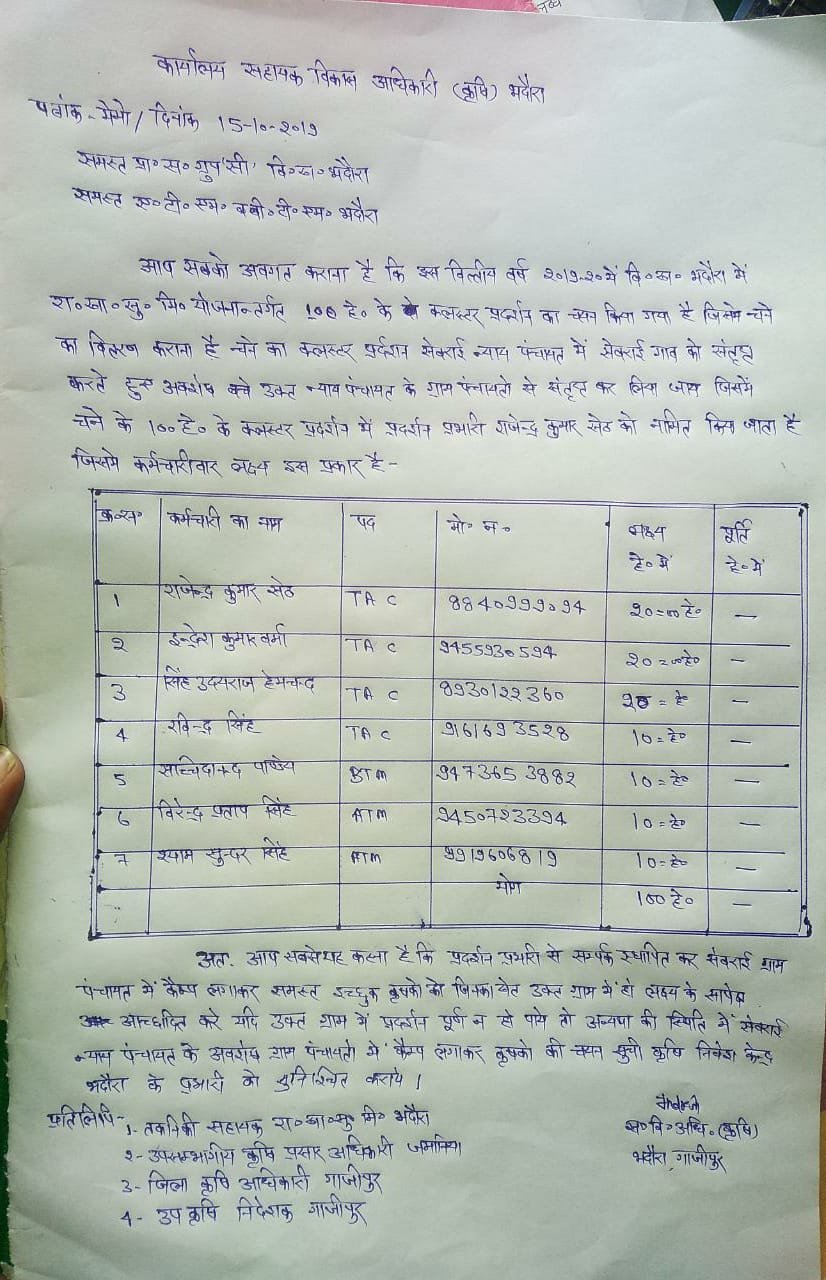 कार्यालय सहायक विकास अधिकारी (कृषि) भदौरा
पत्रांक-मेमो/दिनांक 15-10-२०१9
समस्त प्रा० स० ग्रुप 'सी' वि०ख० भदौरा
समस्त ए०टी०एम० व बी०टी०एम० भदौरा
आप सबको अवगत कराना है कि इस वित्तीय वर्ष २०१9-२० में वि०ख० भदौरा में
रा०खा०सु० मि० योजनान्तर्गत 100 हे० के क्लस्टर प्रदर्शन का चयन किया गया है जिसमे चने
का वितरण कराना है चने का क्लस्टर प्रर्दशन सेवराई न्याय पंचायत में सेवराई गाव को संतृप्त
करते हुए अवशेष उक्त न्याय पंचायत के ग्राम पंचायतो से संतृप्त कर लिया जाय जिसमें
चने के 100 हे० के क्लस्टर प्रदर्शन में प्रदर्शन प्रभारी राजेन्द्र कुमार सेठ को नामित किया जाता है
जिसमे कर्मचारीवार लक्ष्य इस प्रकार है -
क्र०स० कर्मचारी का नाम पद मो० न० लक्ष्य हे० में पूर्ति हे० में
1 राजेन्द्र कुमार सेठ TA C 8840999०94 २०=०० हे० —
२ इन्द्रेश कुमार वर्मा TA C 945593०594 २०=०० हे० —
3 सिंह उदयराज हेमचन्द TA C 8930122360 २० = हे —
4 रविन्द्र सिंह TA C 9161693528 10=हे० —
5 सच्चिदानन्द पाण्डेय BTM 9473653882 10=हे० —
6 विरेन्द्र प्रताप सिंह ATM 9450723394 10=हे० —
7 श्याम सुन्दर सिंह ATM 9919606819 10=हे० —
योग 100 हे० —
अतः आप सबसे यह कहना है कि प्रदर्शन प्रभारी से सम्पर्क स्थापित कर सेवराई ग्राम
पंचायत में कैम्प लगाकर समस्त इच्छुक कृषको को जिनका खेत उक्त ग्राम में हो लक्ष्य के सापेक्ष
आच्छादित करे यदि उक्त ग्राम में प्रदर्शन पूर्ण न हो पाये तो अन्यथा की स्थिति में सेवराई
न्याय पंचायत के अवशेष ग्राम पंचायतो में कैम्प लगाकर कृषको की चयन सूची कृषि निवेश केन्द्र
भदौरा के प्रभारी को सुनिश्चित कराये।
प्रतिलिपि-
1- तकनिकी सहायक रा०खा०सु० मि० भदौरा
२- उपसम्भागीय कृषि प्रसार अधिकारी जमानिया
3- जिला कृषि अधिकारी गाजीपुर
4- उप कृषि निदेशक गाजीपुर
स०वि०अधि०(कृषि)
भदौरा, गाजीपुर